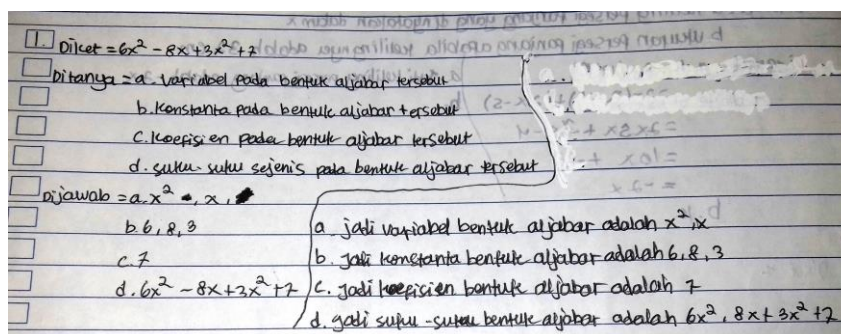 1. Diket = 6x² - 8x + 3x² + 7
Ditanya = a. Variabel pada bentuk aljabar tersebut
b. Konstanta pada bentuk aljabar tersebut
c. Koefisien pada bentuk aljabar tersebut
d. suku-suku sejenis pada bentuk aljabar tersebut
Dijawab = a. x², x,
b. 6, 8, 3
c. 7
d. 6x² - 8x + 3x² + 7
a. jadi variabel bentuk aljabar adalah x², x
b. Jadi konstanta bentuk aljabar adalah 6, 8, 3
c. Jadi koefisien bentuk aljabar adalah 7
d. jadi suku-suku bentuk aljabar adalah 6x², 8x + 3x² + 7